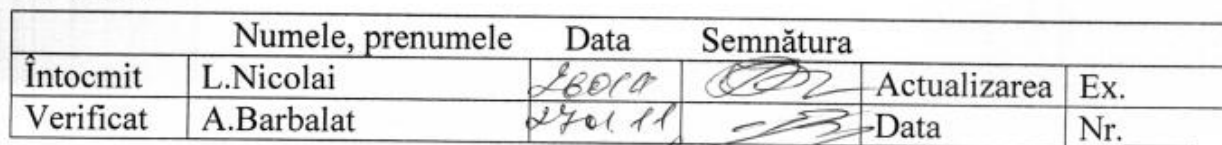 Numele, prenumele Data Semnătura
Întocmit L.Nicolai Actualizarea Ex.
Verificat A.Barbalat 270111 Data Nr.